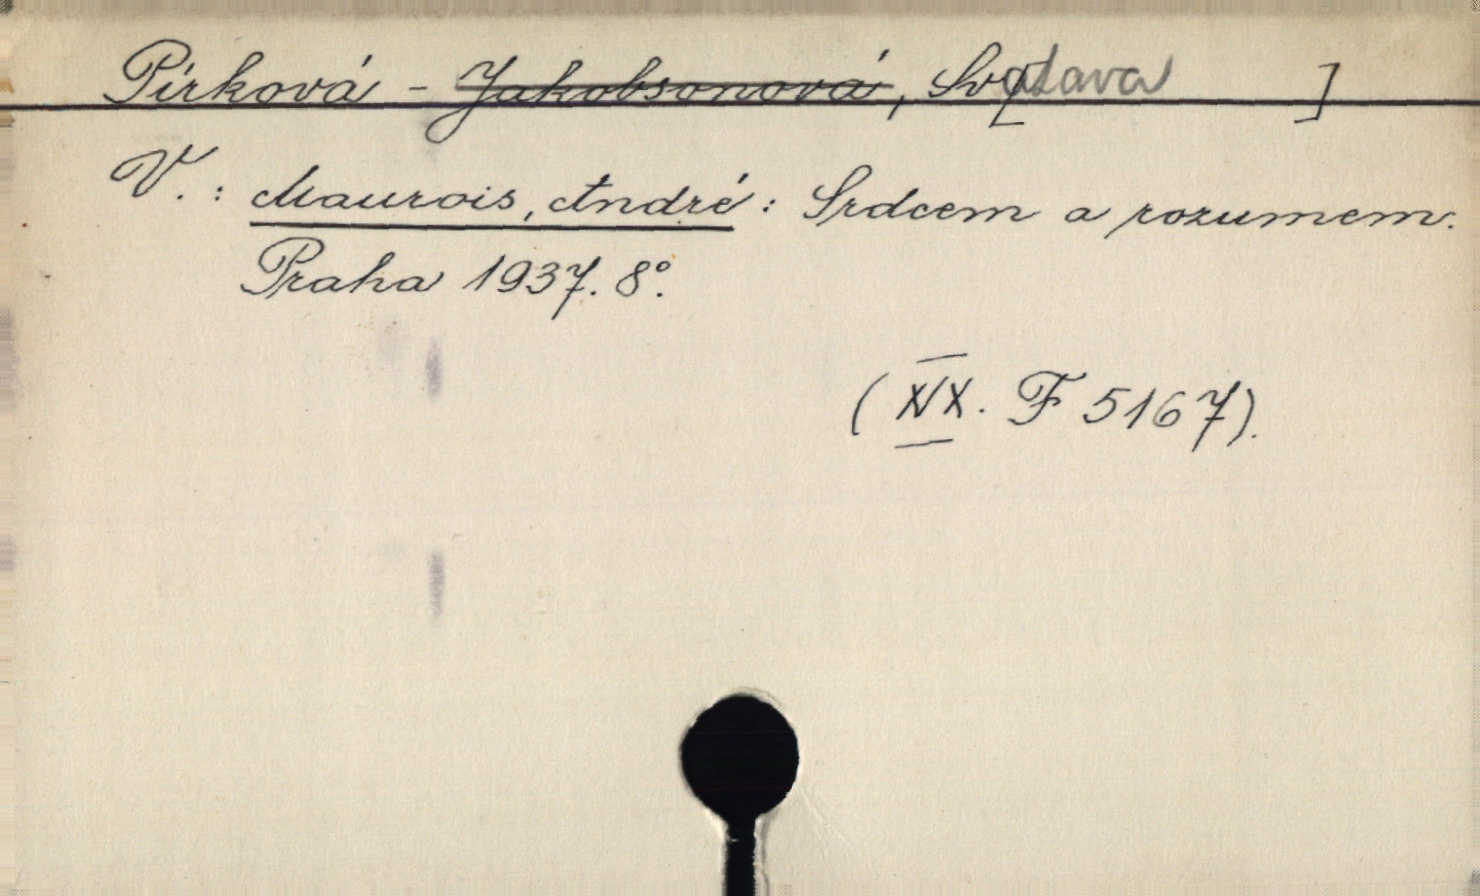 Pírková - Jakobsonová, Sv[atava ]
V.: Maurois, André: Srdcem a rozumem.
Praha 1937. 8°.
(XIX. F 5167).